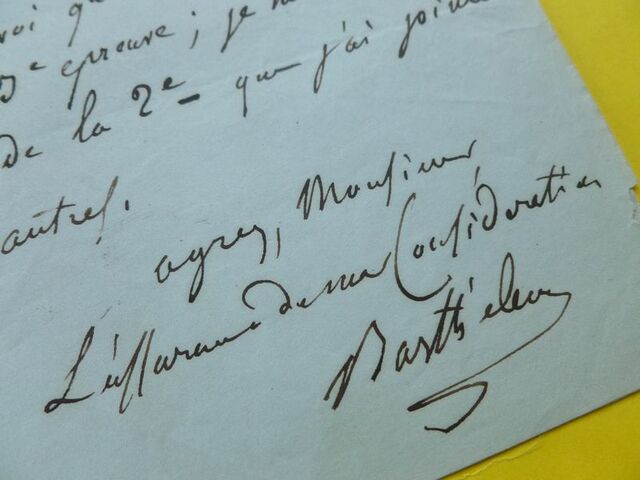 3e épreuve ; je
de la 2e que j'ai joint
autres.
agréez, Monsieur,
L'assurance de ma Considération
Barthélemy